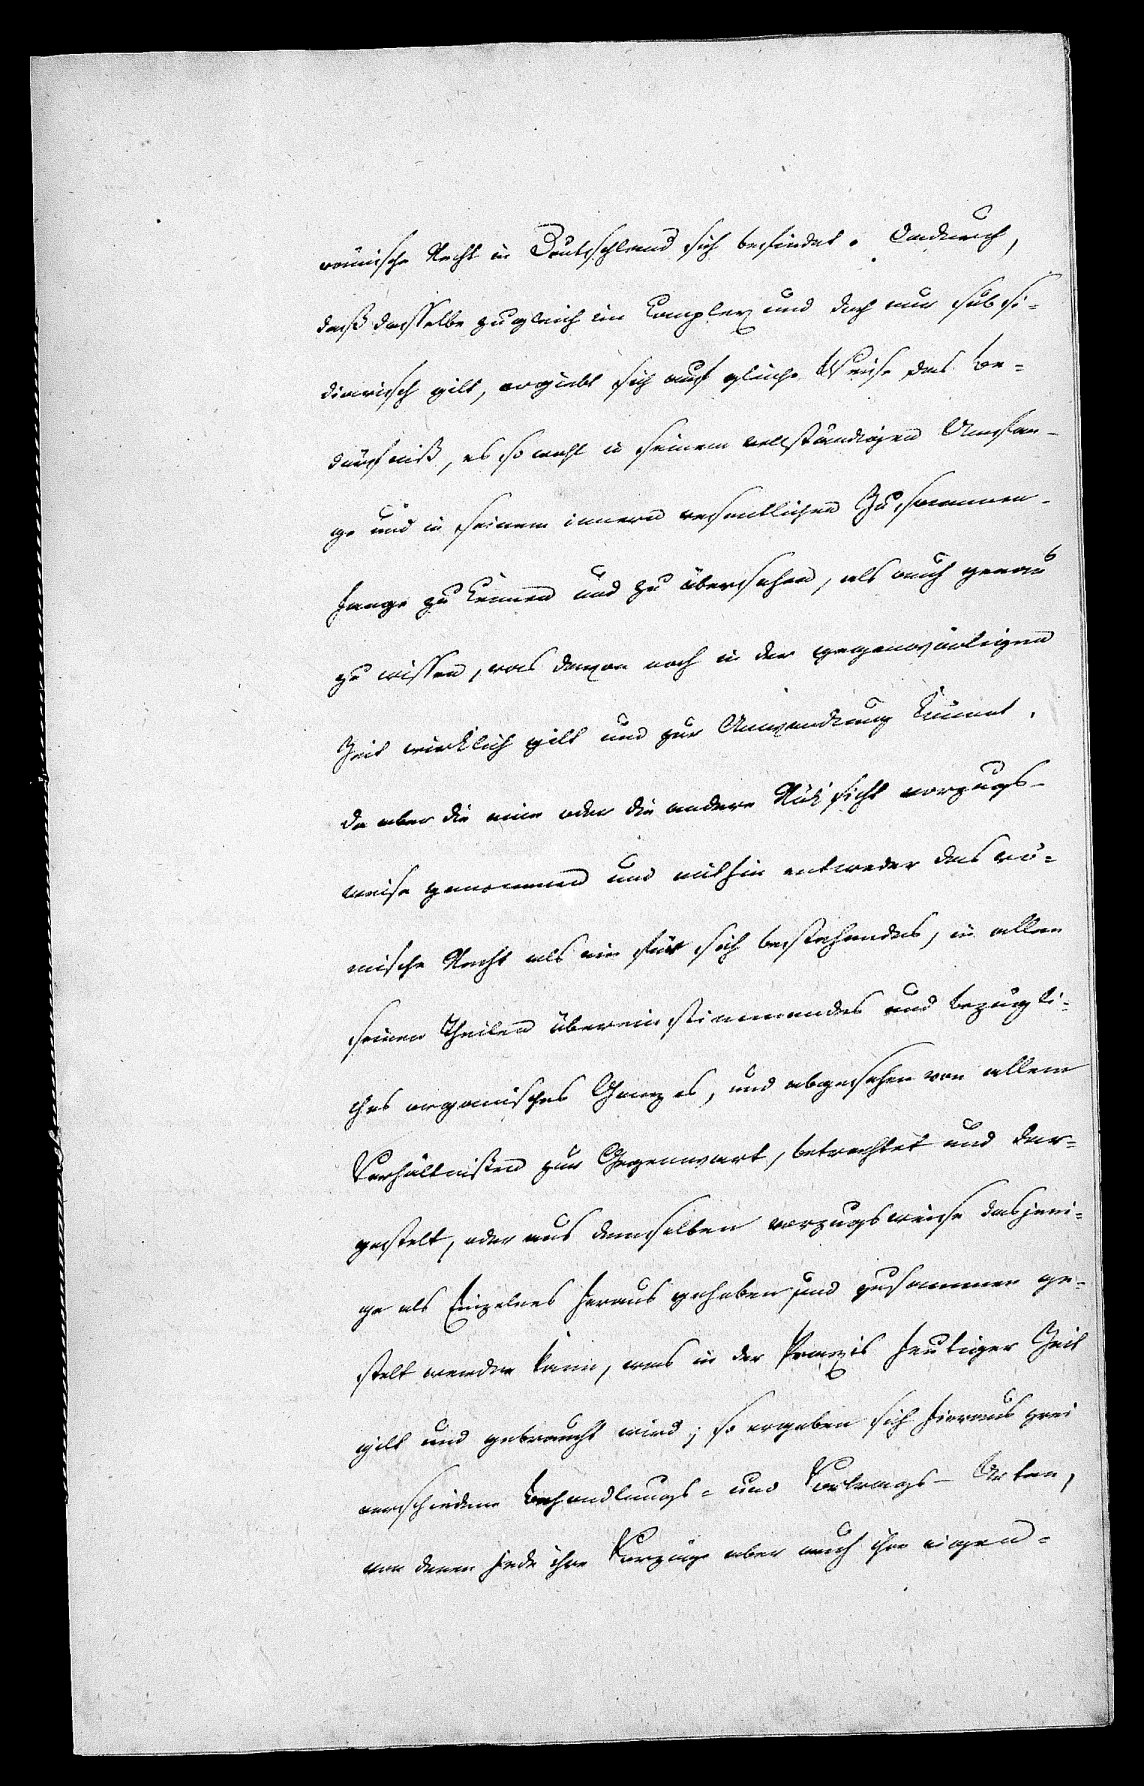 römische Recht in Deutschland sich befindet. Dadurch,
daß dasselbe zugleich im Complex und doch nur subsi-
diarisch gilt, ergiebt sich auf gleiche Weise das Be-
dürfniß, es so wohl in seinem vollständigen Umfan-
ge und in seinem innern wesentlichen Zusammen-
hange zu kennen und zu übersehen, als auch genau
zu wissen, was davon noch in der gegenwärtigen
Zeit wirklich gilt und zur Anwendung kömmt.
Da aber die eine oder die andere Rüksicht vorzugs-
weise genommen und mithin entweder das rö-
mische Recht als ein für sich bestehendes, in allen
seinen Theilen übereinstimmendes und bezügli-
ches organisches Ganzes, und abgesehen von allem
Verhältnißen zur Gegenwart, betrachtet und dar-
gestelt, oder aus demselben vorzugsweise dasjeni-
ge als Einzelnes heraus gehoben und zusammen ge-
stelt werden kann, was in der Praxis heutiger Zeit
gilt und gebraucht wird; so ergeben sich hieraus zwei
verschiedene Behandlungs- und Vortrags-Arten,
von denen jede ihre Vorzüge aber auch ihre eigen-